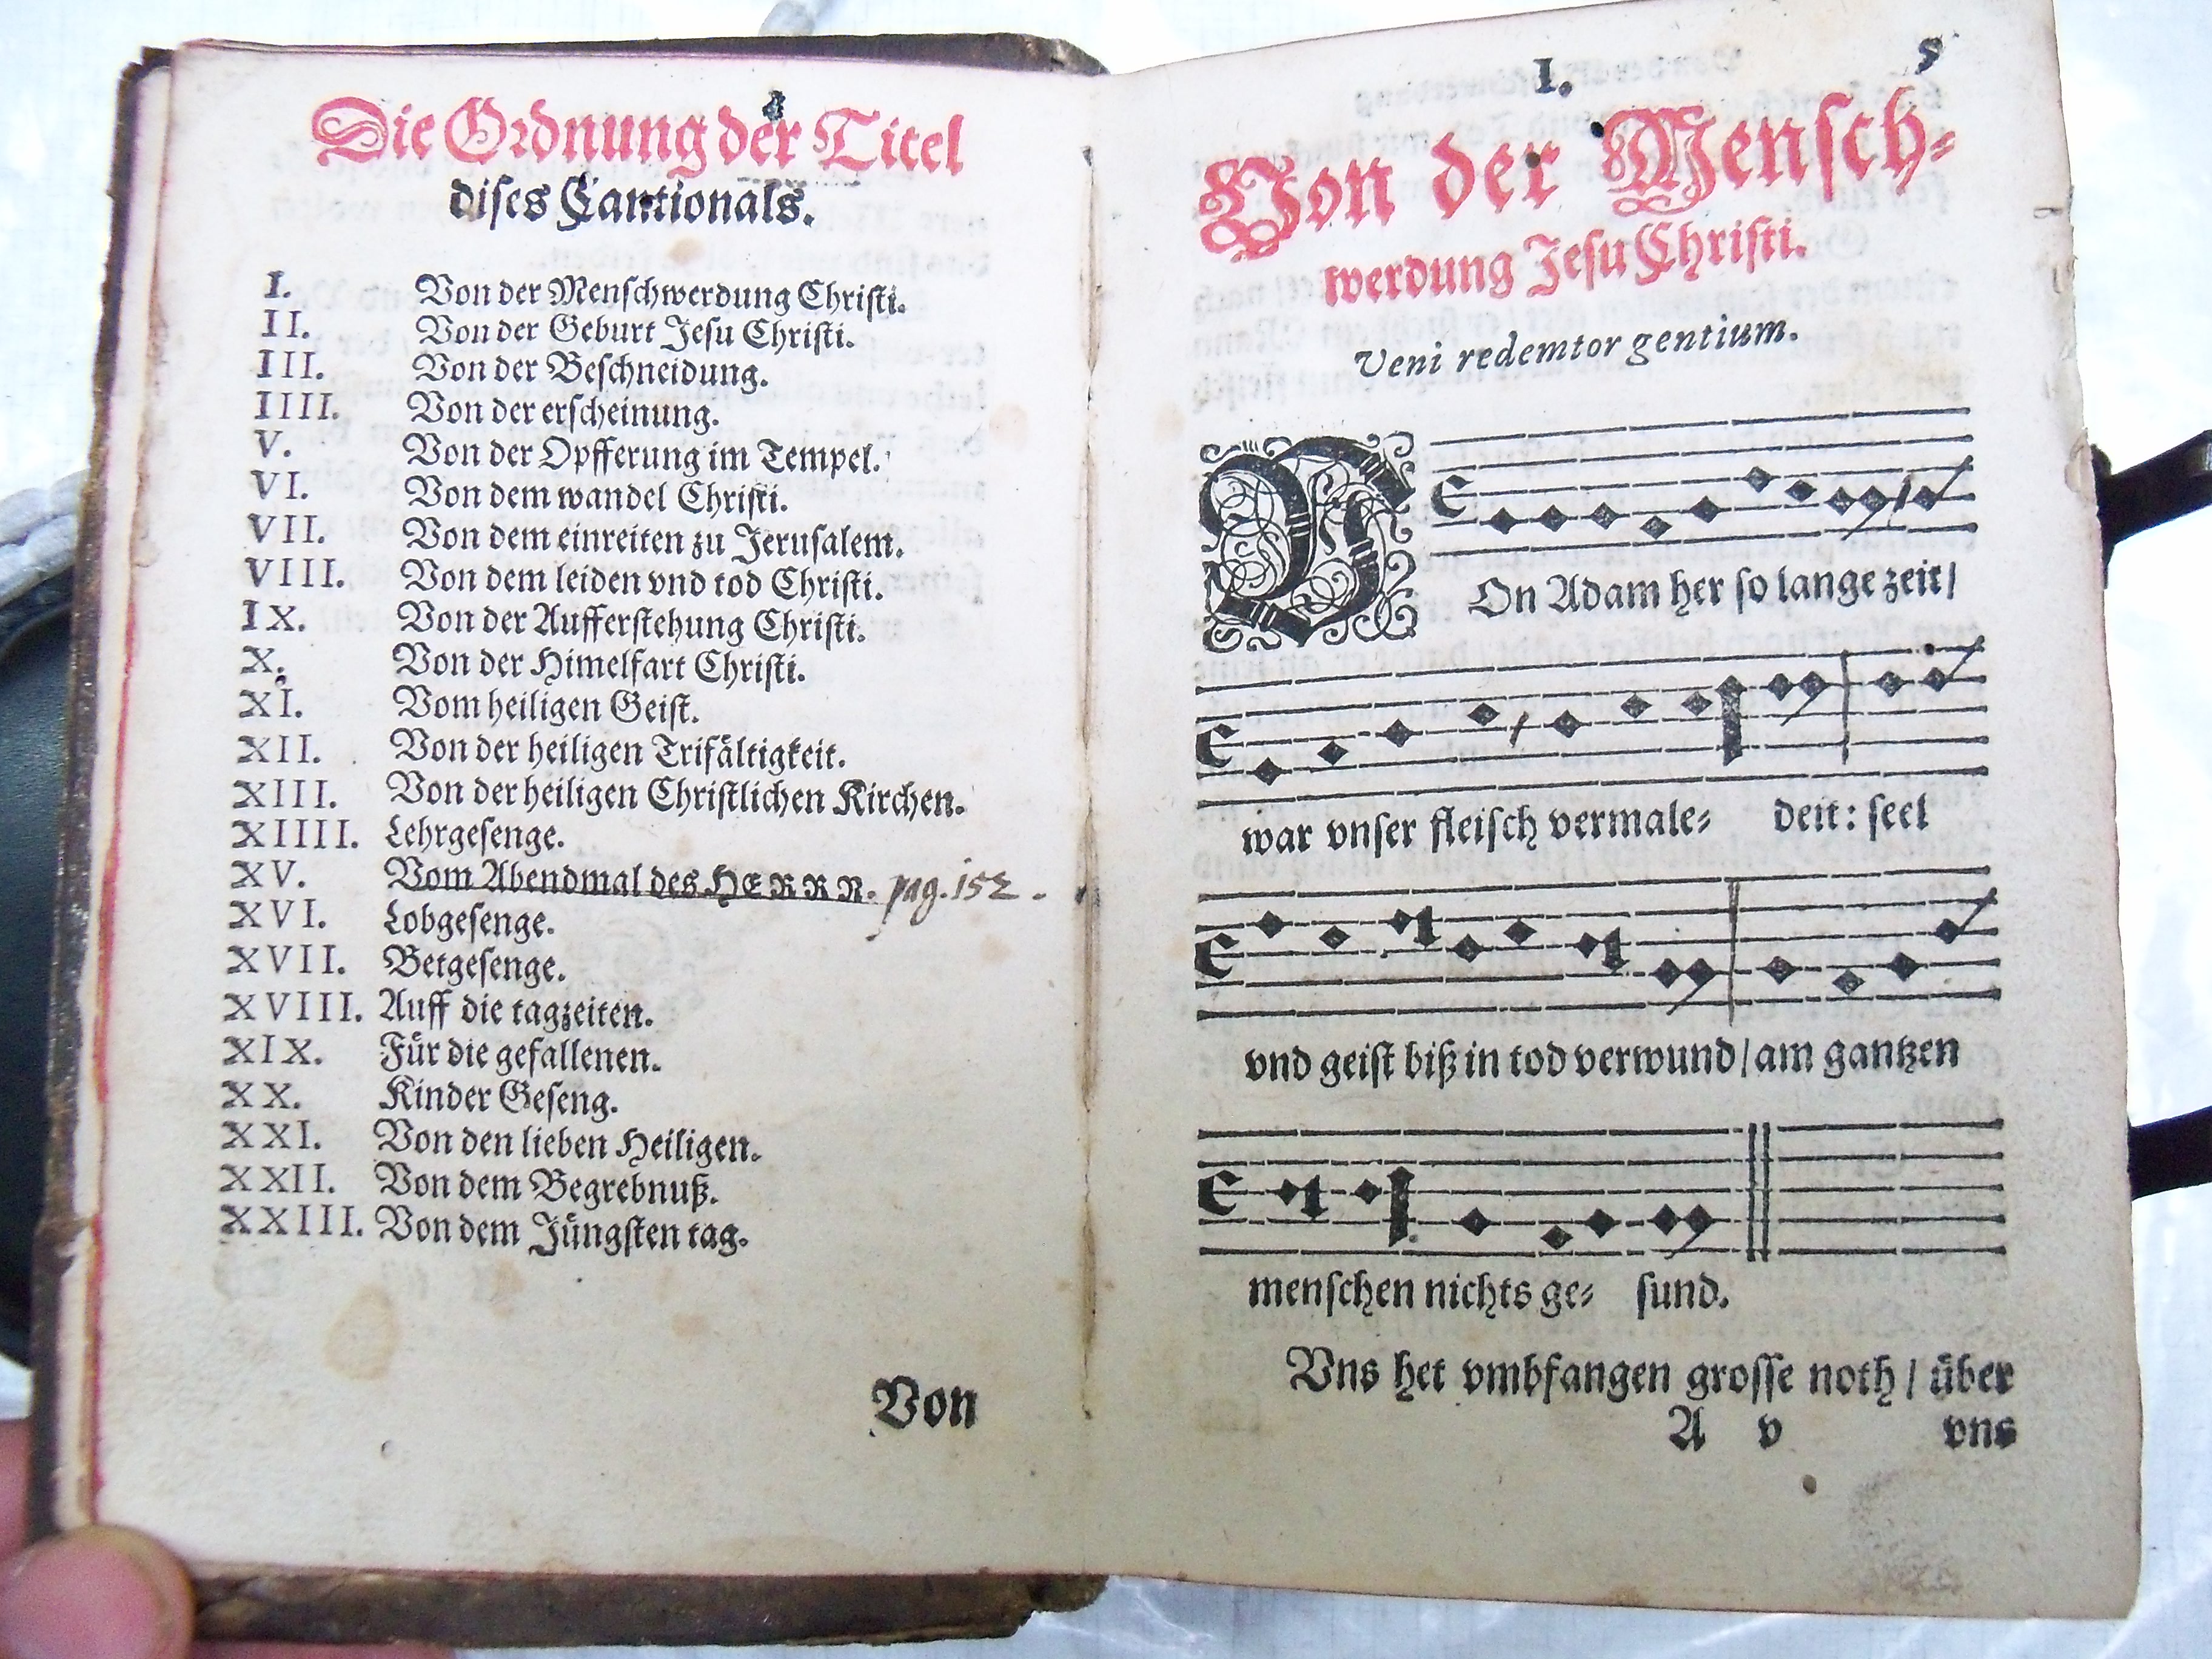 Die Ordnung der Titel
dises Cantionals.
I. Von der Menschwerdung Christi.
II. Von der Geburt Jesu Christi.
III. Von der Beschneidung.
IIII. Von der erscheinung.
V. Von der Opfferung im Tempel.
VI. Von dem wandel Christi.
VII. Von dem einreiten zu Jerusalem.
VIII. Von dem leiden vnd tod Christi.
IX. Von der Aufferstehung Christi.
X. Von der Himelfart Christi.
XI. Vom heiligen Geist.
XII. Von der heiligen Trifåltigkeit.
XIII. Von der heiligen Christlichen Kirchen.
XIIII. Lehrgesenge.
XV. Vom Abendmal des HERRN. pag. 152.
XVI. Lobgesenge.
XVII. Betgesenge.
XVIII. Auff die tagzeiten.
XIX. Für die gefallenen.
XX. Kinder Geseng.
XXI. Von den lieben Heiligen.
XXII. Von dem Begrebnuß.
XXIII. Von dem Jüngsten tag.
Von
I. 5
Von der Mensch⸗
werdung Jesu Christi.
Veni redemtor gentium.
VOn Adam her so lange zeit/
war vnser fleisch vermale⸗ deit: seel
vnd geist biß in tod verwund/ am gantzen
menschen nichts ge⸗ sund.
Vns het vmbfangen grosse noth/ über
A v vns